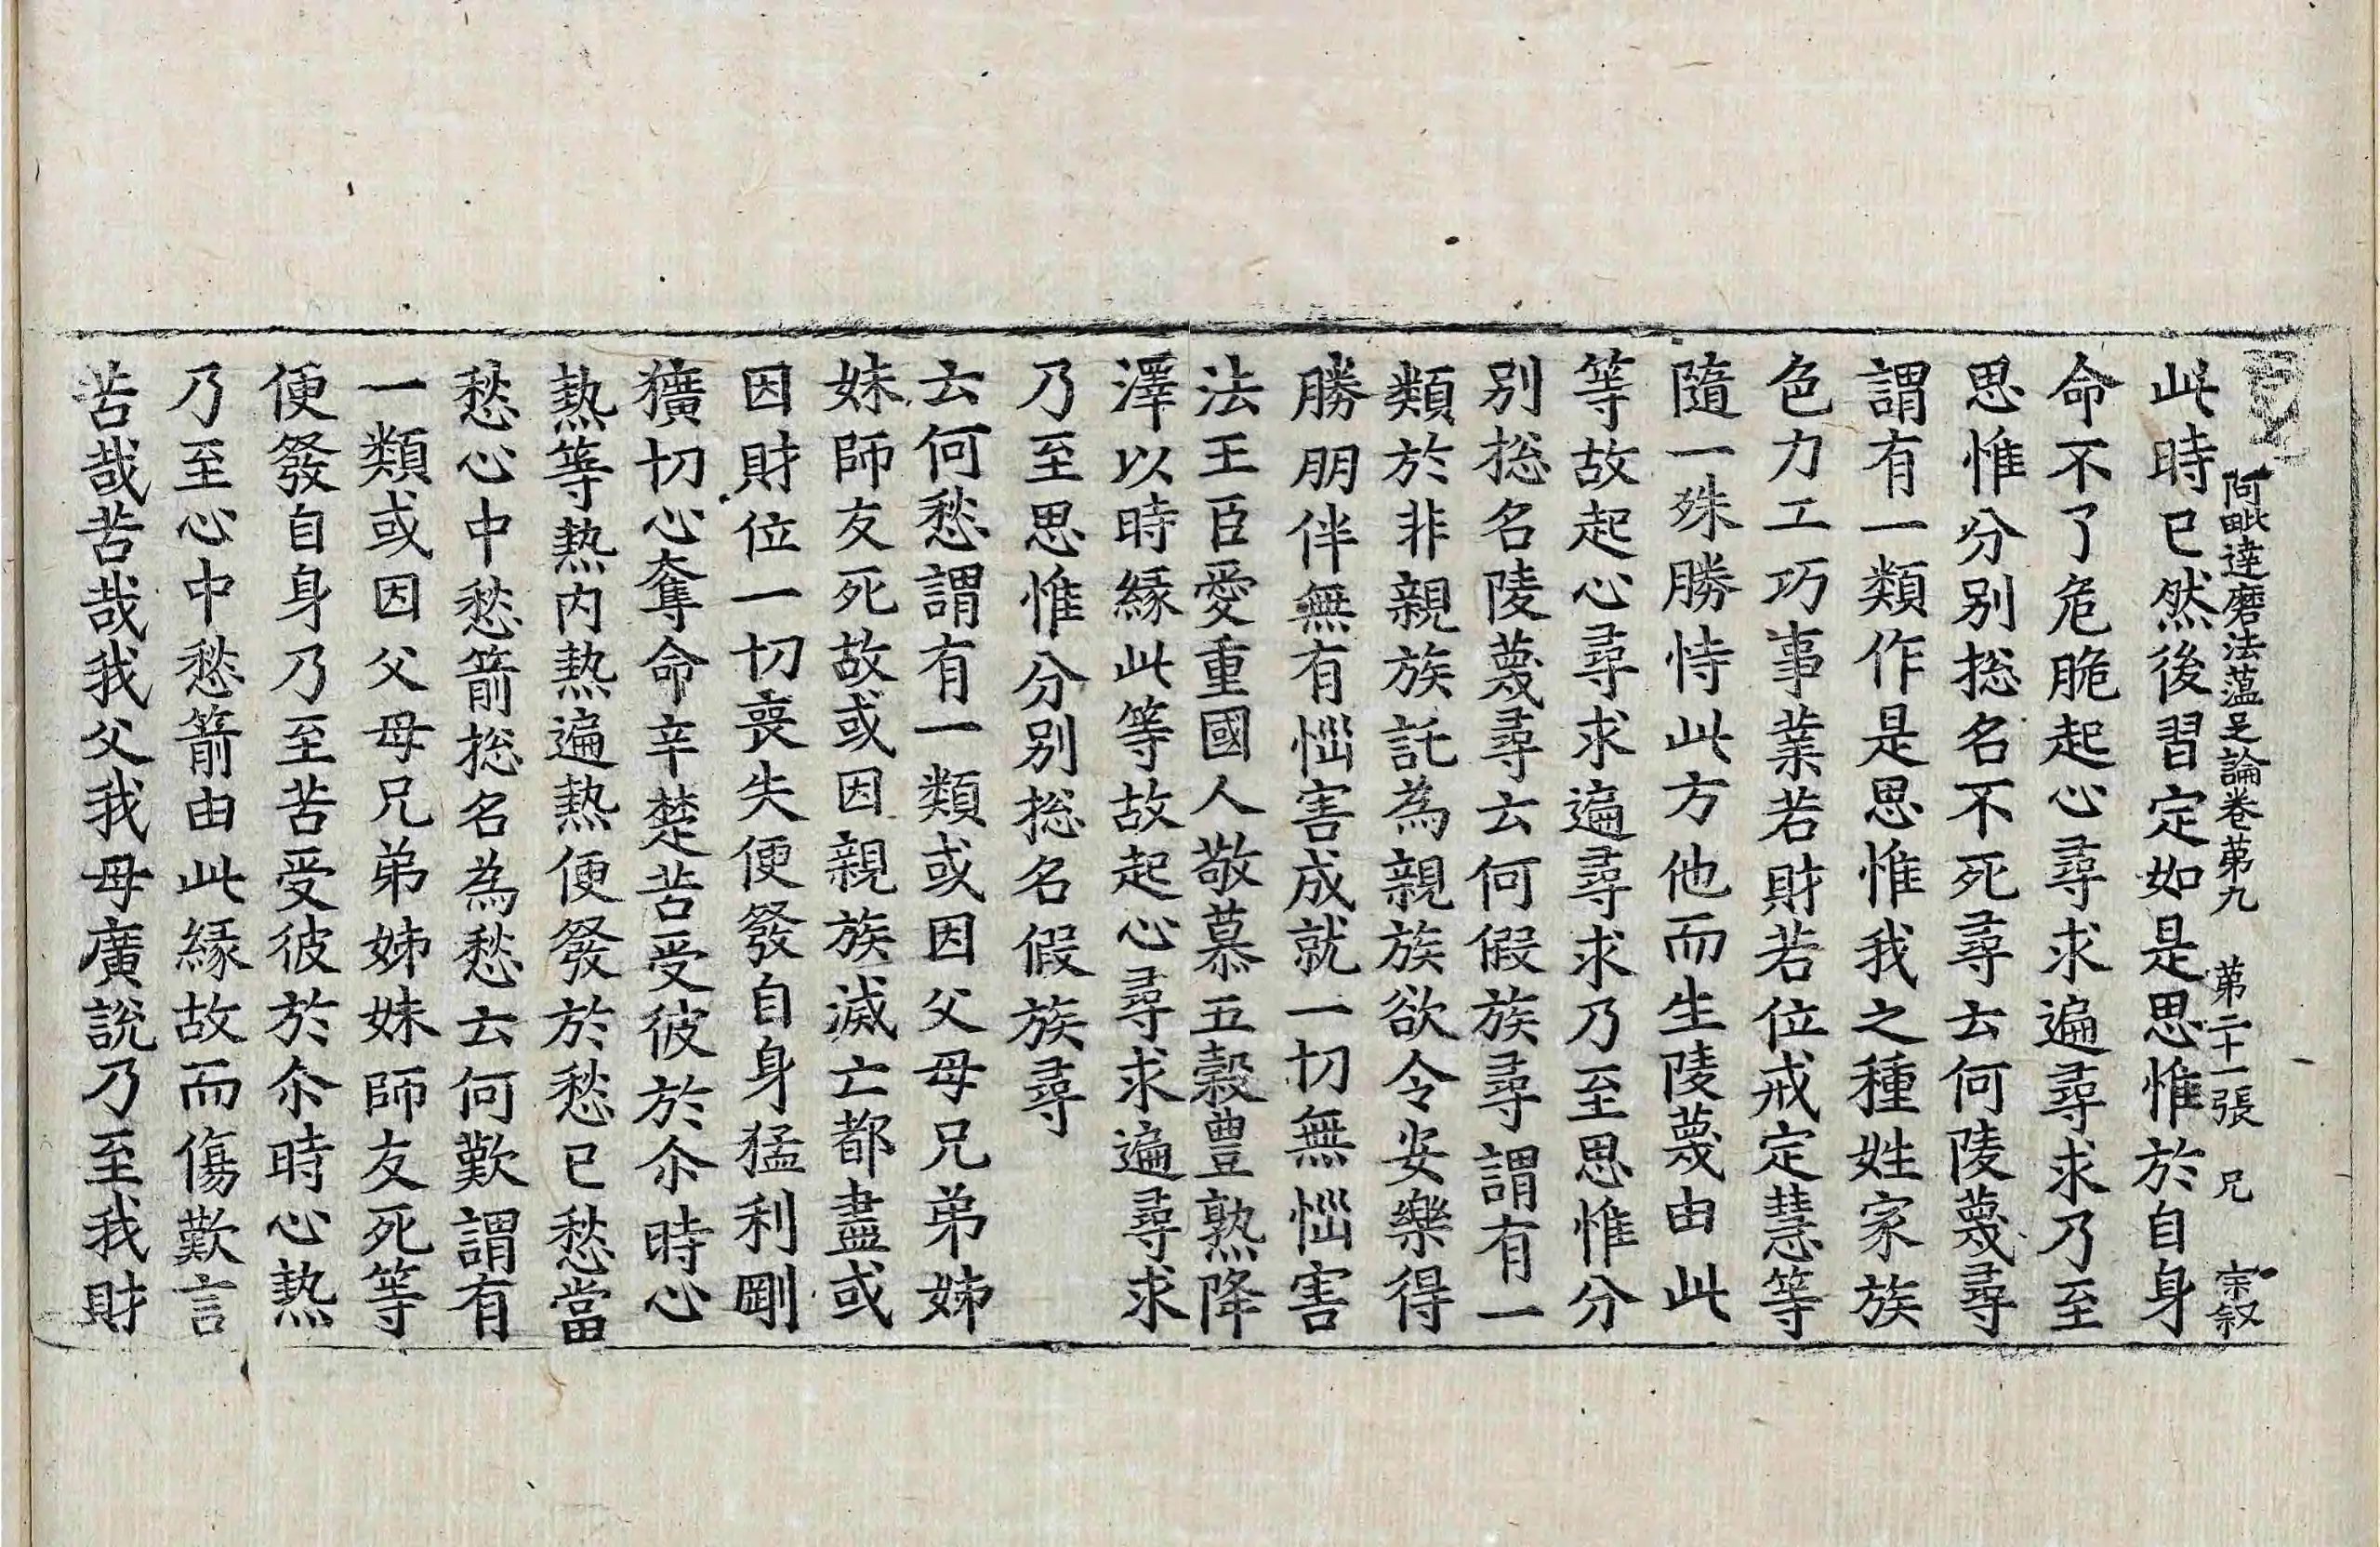 阿毗達磨法蘊足論卷第九　第二十一張　兄　宗叙
此時已然後習定如是思惟於自身
命不了危脆起心尋求遍尋求乃至
思惟分别揔名不死尋云何陵蔑尋
謂有一類作是思惟我之種姓家族
色力工巧事業若財若位戒定慧等
隨一殊勝恃此方他而生陵蔑由此
等故起心尋求遍尋求乃至思惟分
别揔名陵蔑尋云何假族尋謂有一
類於非親族託為親族欲令安樂得
勝朋伴無有惱害成就一切無惱害
法王臣愛重國人敬慕五穀豊熟降
澤以時緣此等故起心尋求遍尋求
乃至思惟分别揔名假族尋
云何愁謂有一類或因父母兄弟姊
妹師友死故或因親族滅亡都盡或
因財位一切喪失便發自身猛利剛
獷切心奪命辛楚苦受彼於尒時心
熱等熱內熱遍熱便發於愁已愁當
愁心中愁箭揔名為愁云何歎謂有
一類或因父母兄弟姊妹師友死等
便發自身乃至苦受彼於尒時心熱
乃至心中愁箭由此緣故而傷歎言
苦哉苦哉我父我母廣說乃至我財